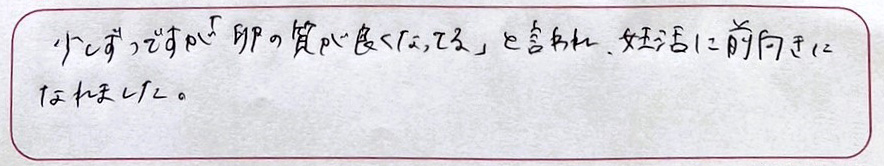 少しずつですが「卵の質が良くなってる」と言われ、妊活に前向きに
なれました。